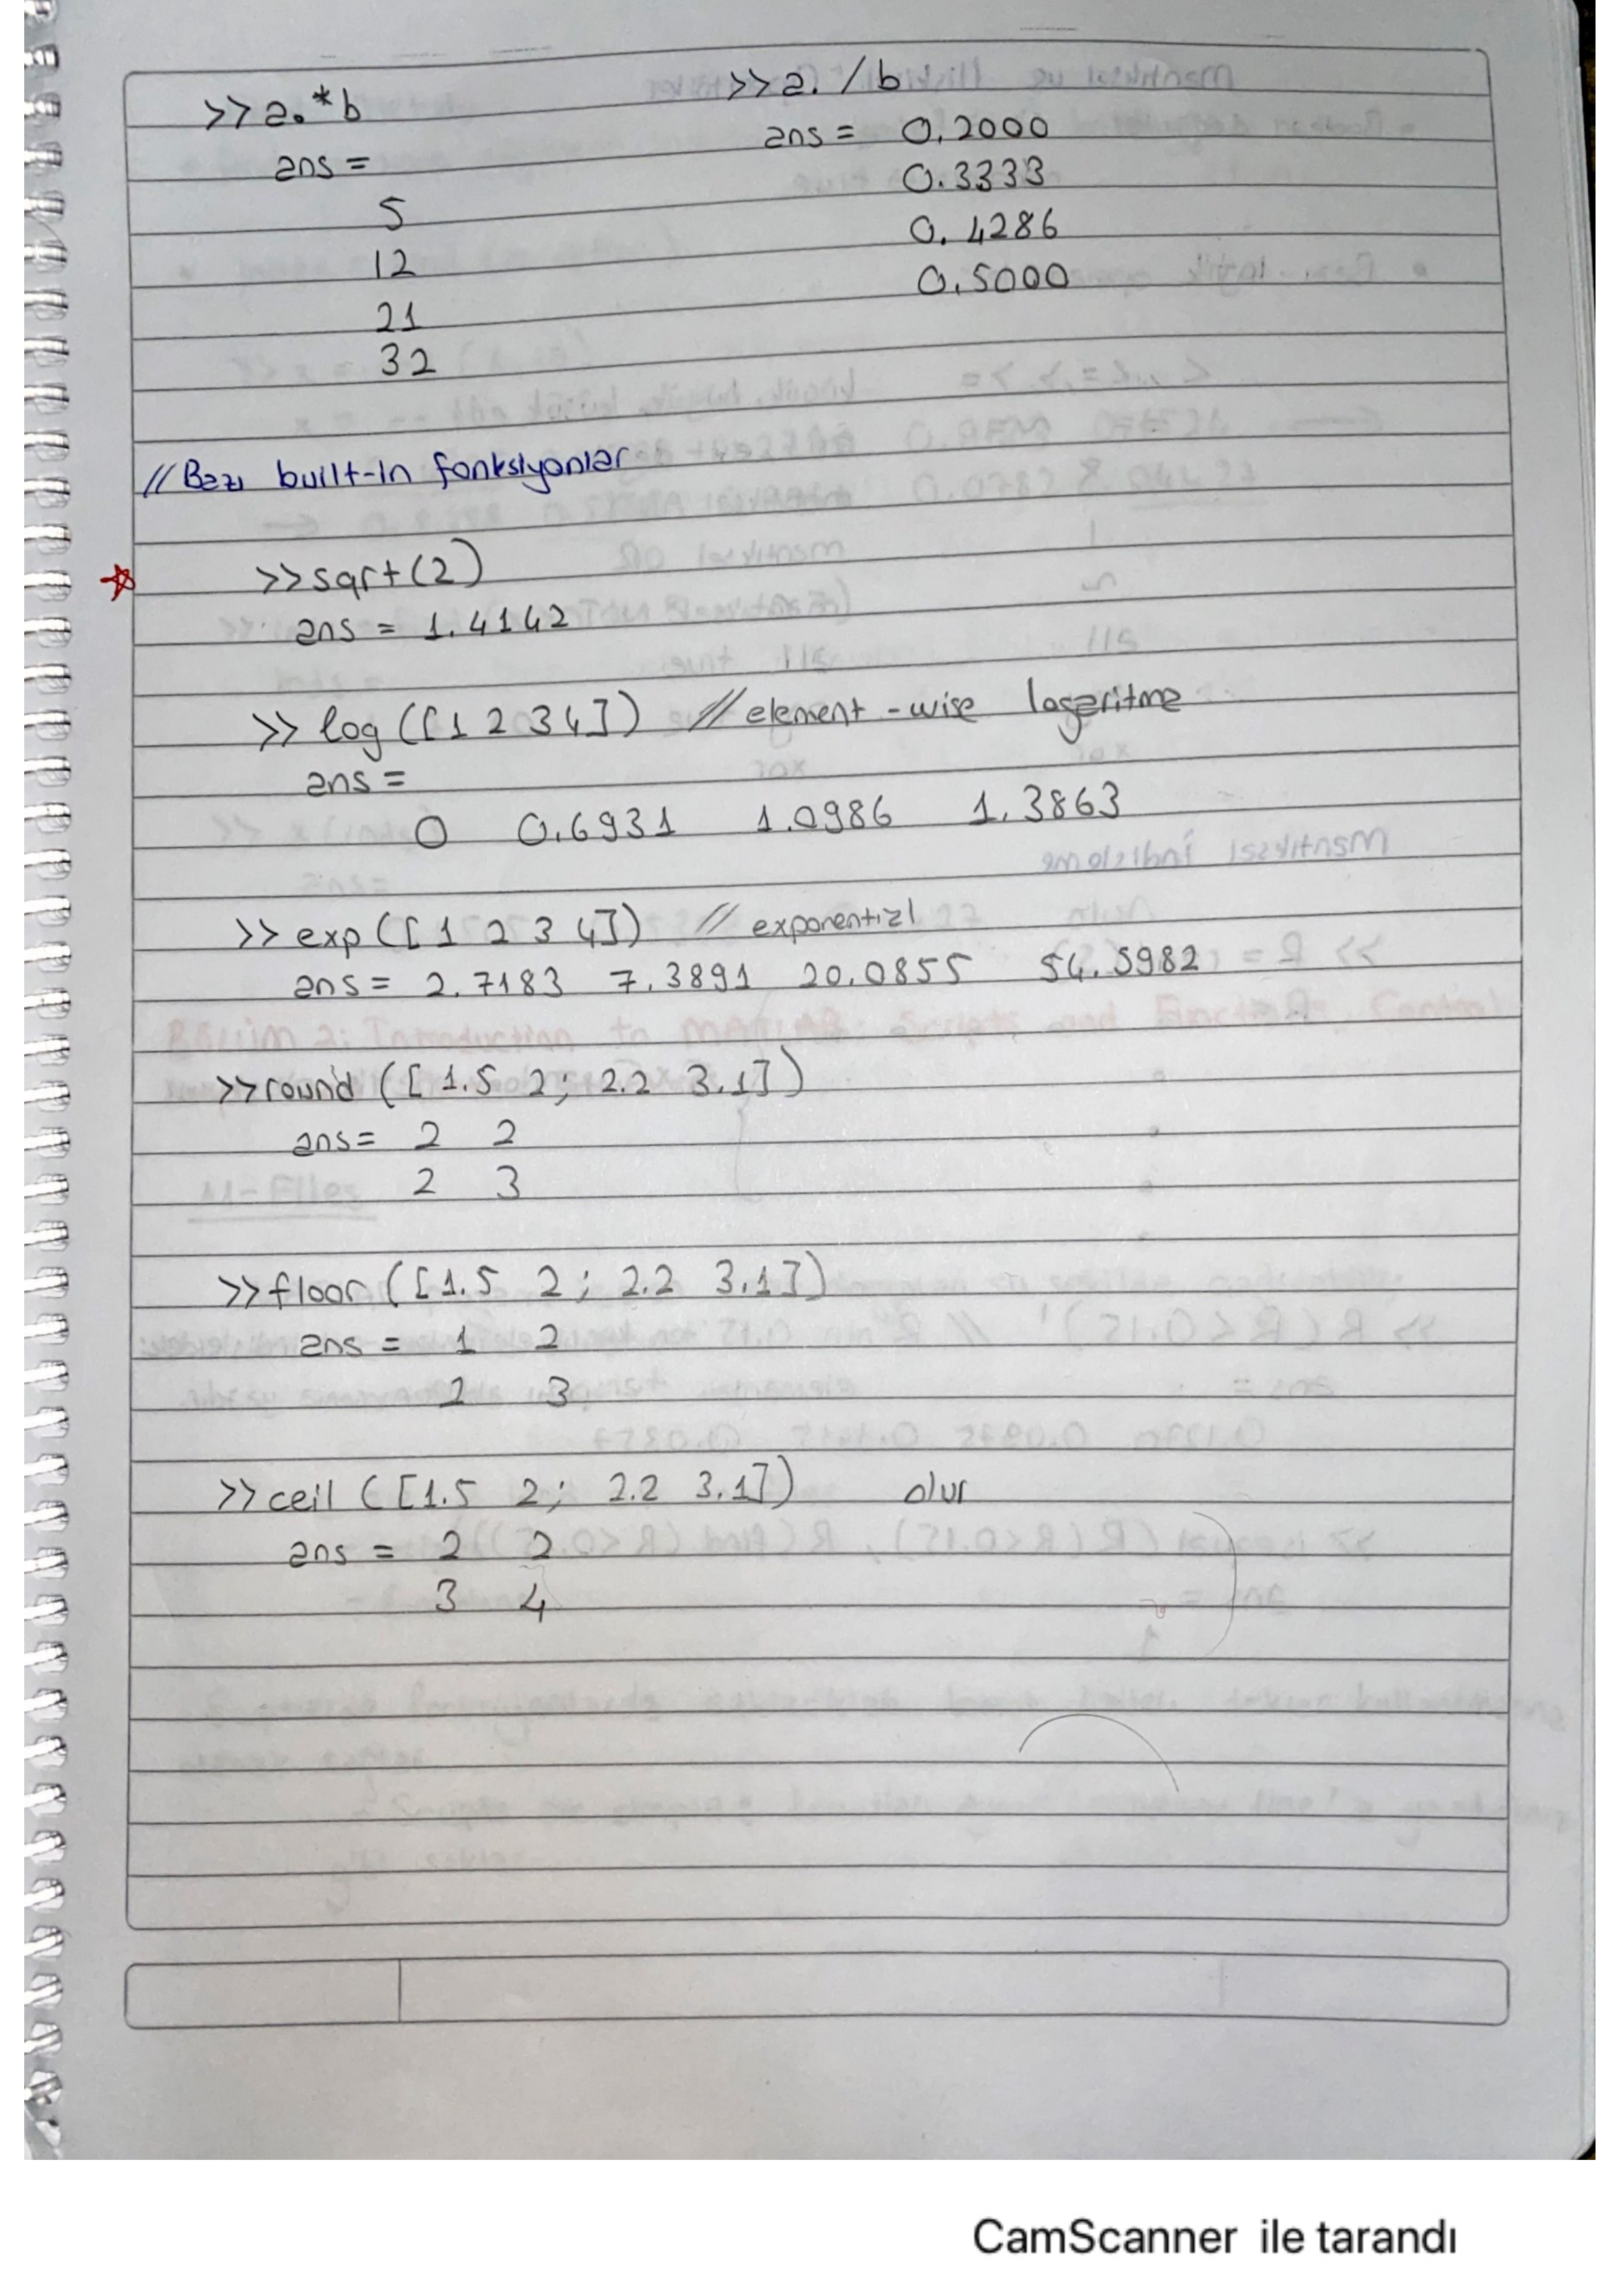 >>a.*b
ans =
5
12
21
32
>>a./b
ans = 0.2000
0.3333
0.4286
0.5000
//Bazı built-in fonksiyonlar
>>sqrt(2)
ans = 1.4142
>> log([1 2 3 4]) //element-wise logaritma
ans =
0 0.6931 1.0986 1.3863
>>exp([1 2 3 4]) // exponential
ans = 2.7183 7.3891 20.0855 54.5982
>>round([1.5 2; 2.2 3.1])
ans = 2 2
2 3
>>floor([1.5 2; 2.2 3.1])
ans = 1 2
2 3
>>ceil([1.5 2; 2.2 3.1]) olur
ans = 2 2
3 4
CamScanner ile tarandı